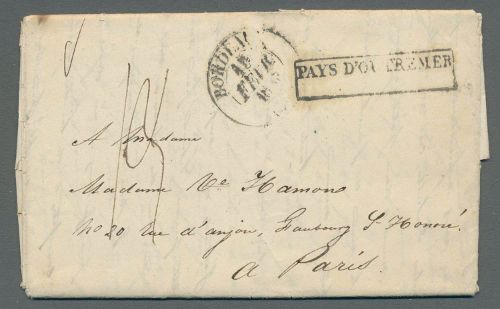 BORDEAUX
FEVR
PAYS D'OUTREMER
A Madame
Madame Ve Hamond
No 20 rue d'anjou, Faubourg St Honoré.
à Paris.